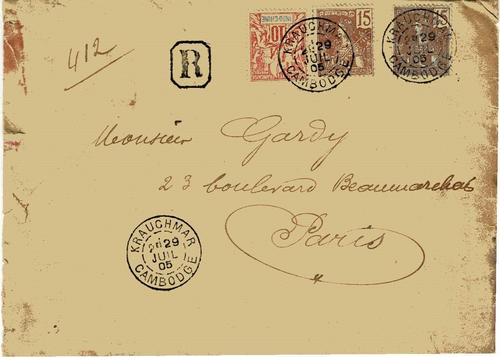 412
R
INDO-CHINE
10
15
15
KRAUCHMAR
29
JUIL
05
CAMBODGE
KRAUCHMAR
29
JUIL
05
CAMBODGE
Monsieur Gardy
23 boulevard Beaumarchais
Paris
KRAUCHMAR
29
JUIL
05
CAMBODGE